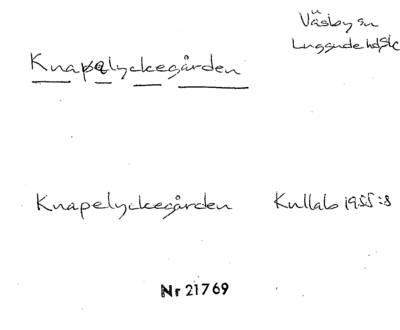 Väsby sn
Luggude hd, Sk
Knapelyckegården
Knapelyckegården Kullab 1955:8
Nr 21769